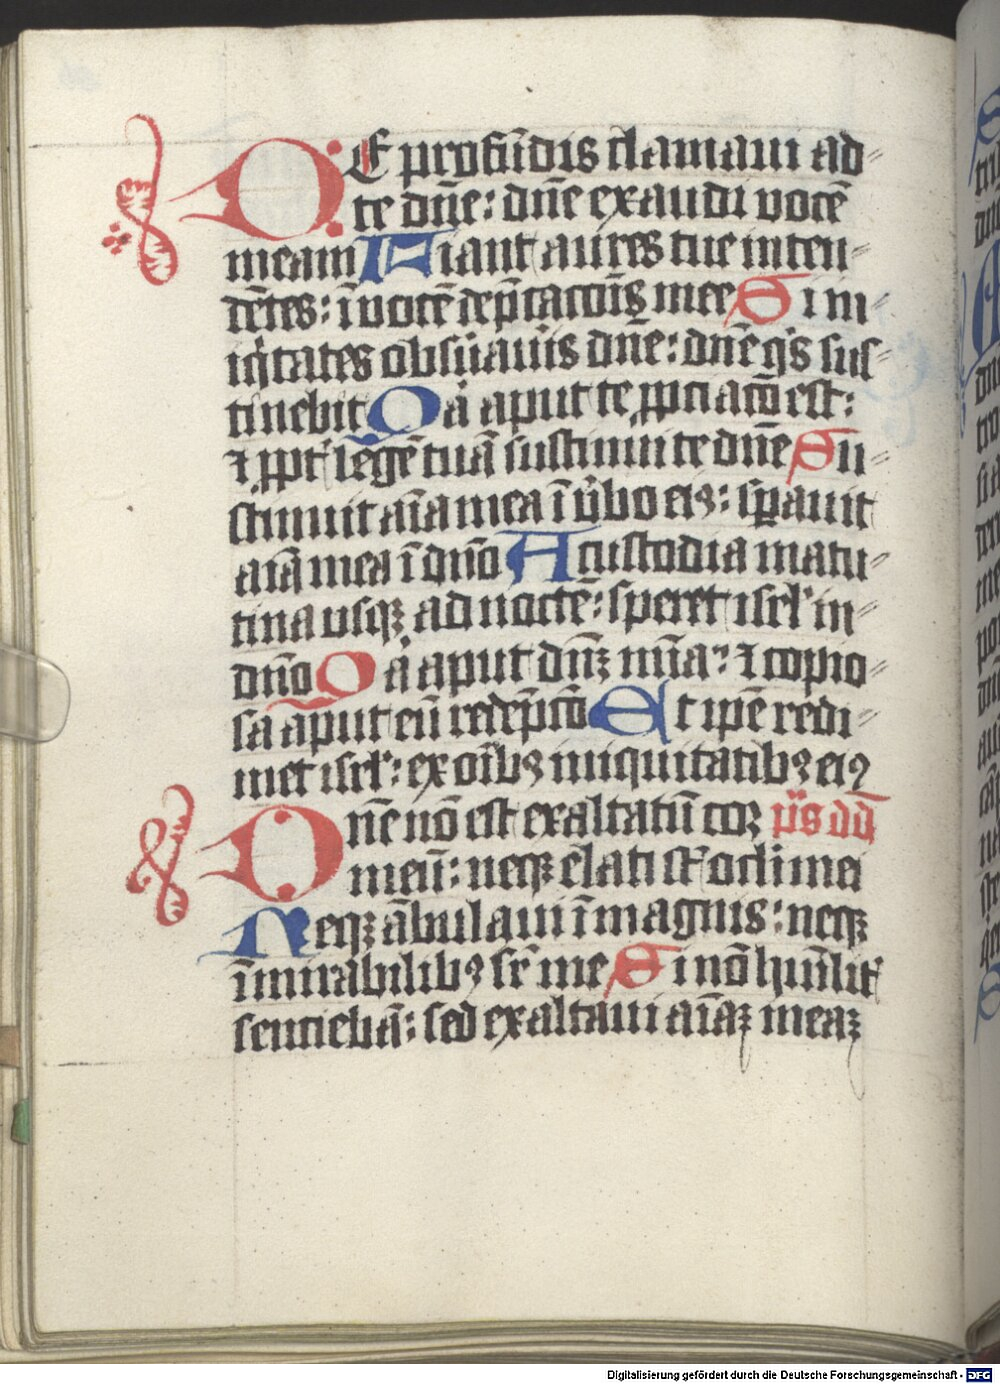 DE profūdis clamaui ad⸗
te dn̄e: dn̄e exaudi vocē
meam Fiant aures tue inten⸗
dētes: ī vocē dep̄catōis mee Si in⸗
iq̇tates obsūauis dn̄e: dn̄e q̇s sus⸗
tinebit Qa aput te ꝓpiciatō est:
⁊ ꝓpt̄ legē tuā sustinui te dn̄e Su⸗
stinuit aīa mea ī v̄bo eiꝰ: sꝑauit
aīa mea ī dn̄o A custodia matu⸗
tina usqꝫ ad noctē: speret isrl̄ in⸗
dn̄o Qa aput dn̄ꝫ mīa: ⁊ copio⸗
sa aput eū redēpcō Et ipē redi⸗
met isrl̄: ex oībꝰ iniquitatibꝰ eiꝰ
Dn̄e nō est exaltatū cor p̄s dd̄
meū: neqꝫ elati st̄ oculi mei
Neqꝫ ābulaui ī magnis: neqꝫ
ī mirabilibꝰ sr̄ me Si nō hūilit̄
sentiebā: sed exaltaui aīaꝫ meaꝫ
Digitalisierung gefördert durch die Deutsche Forschungsgemeinschaft - DFG